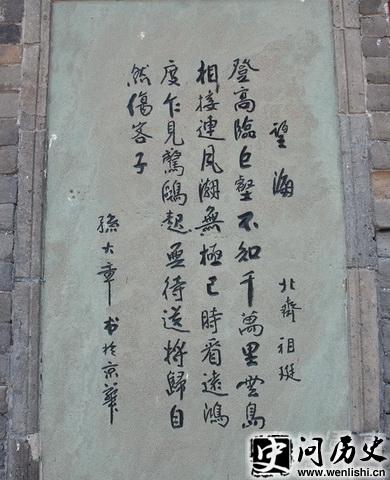 望海
北齊 祖珽
登高臨巨壑不知千萬里雲島
相接連風潮無極已時看遠鴻
度乍見驚鷗起無待送將歸自
然傷客子
孫大章书於京華
史 问历史
www.wenlishi.cn